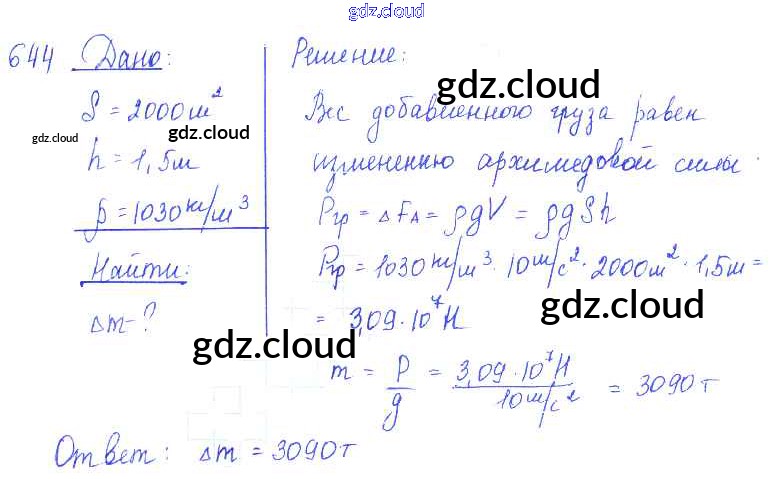 gdz.cloud
644 Дано:
S = 2000 м²
gdz.cloud
gdz.cloud
h = 1,5 м
ρ = 1030 кг/м³
Найти:
Δm - ?
Решение:
gdz.cloud
Вес добавленного груза равен
изменению архимедовой силы.
Pгр = ΔFA = ρgV = ρgSh
Pгр = 1030 кг/м³ · 10 м/с² · 2000 м² · 1,5 м =
gdz.cloud
= 3,09 · 10⁷ Н
gdz.cloud
m = P/g = 3,09 · 10⁷ Н / 10 м/с² = 3090 т
Ответ: Δm = 3090 т